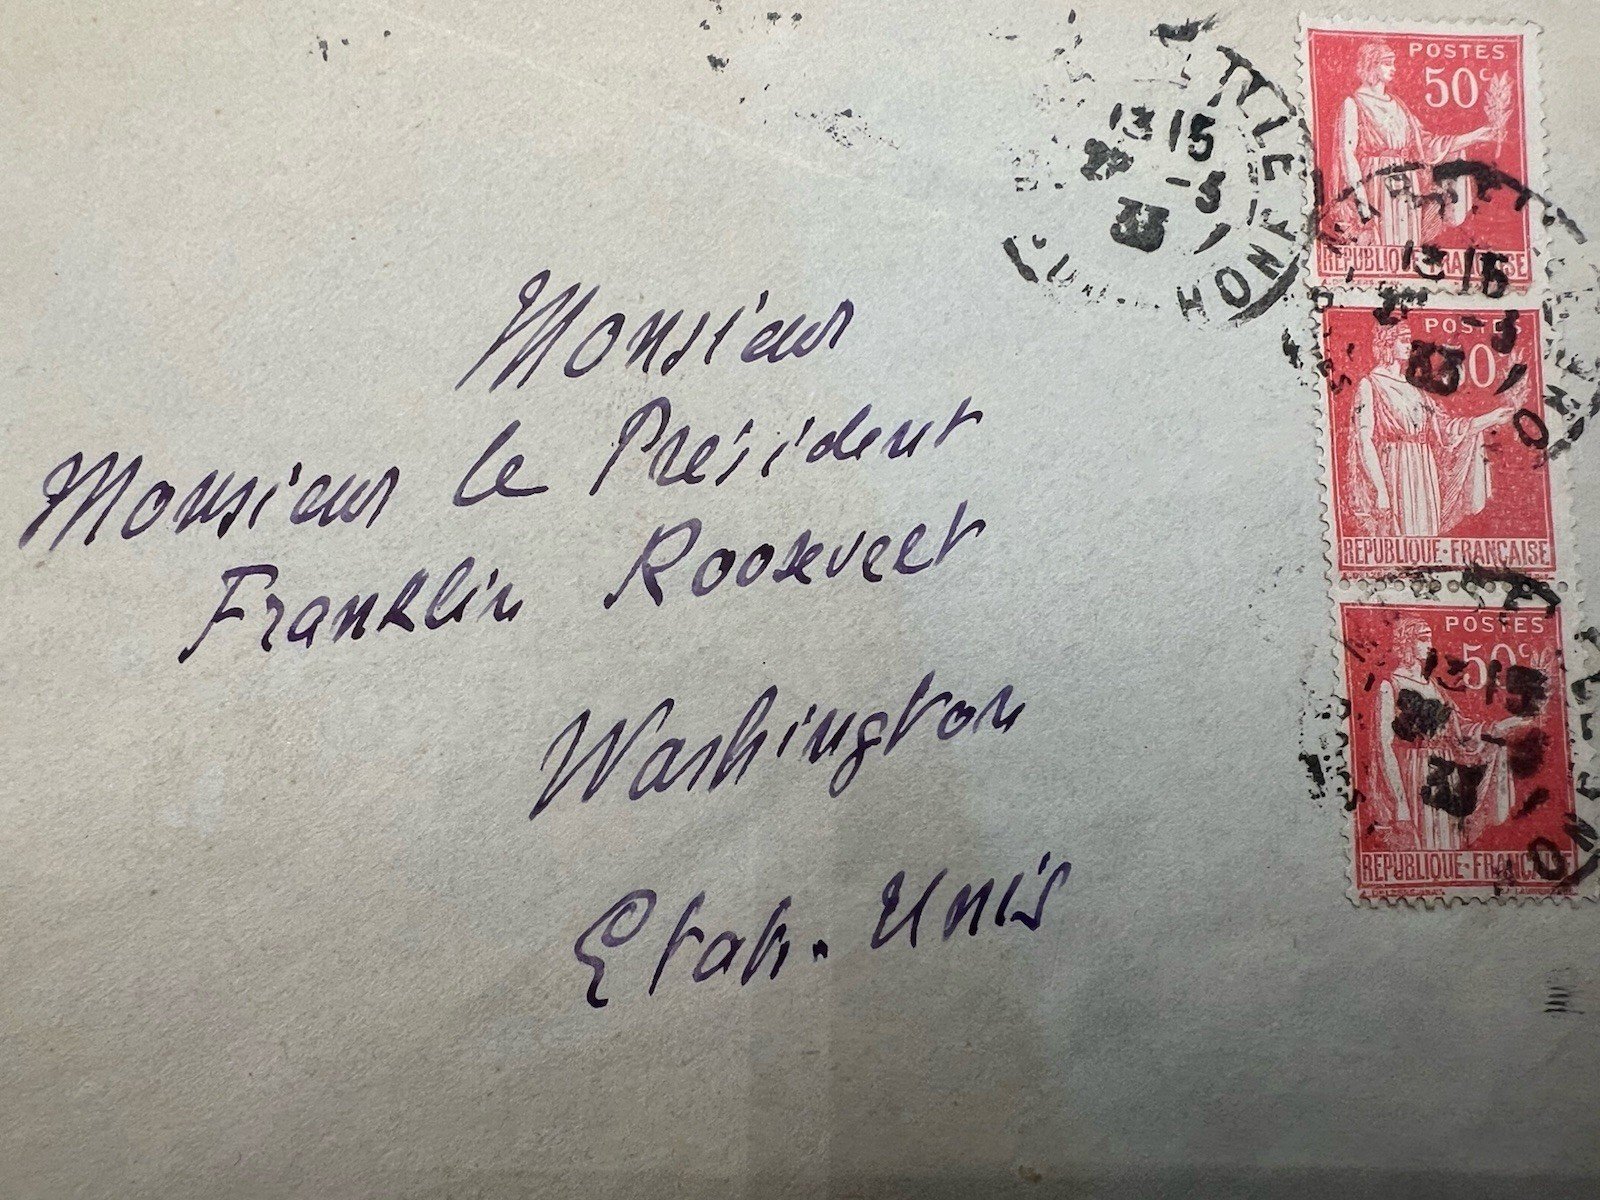 Monsieur
Monsieur le Président
Franklin Roosevelt
Washington
Etats-Unis
POSTES
50c
REPUBLIQUE-FRANÇAISE
POSTES
50c
REPUBLIQUE-FRANÇAISE
POSTES
50c
REPUBLIQUE-FRANÇAISE
13 15
33
13 15
33
13 15